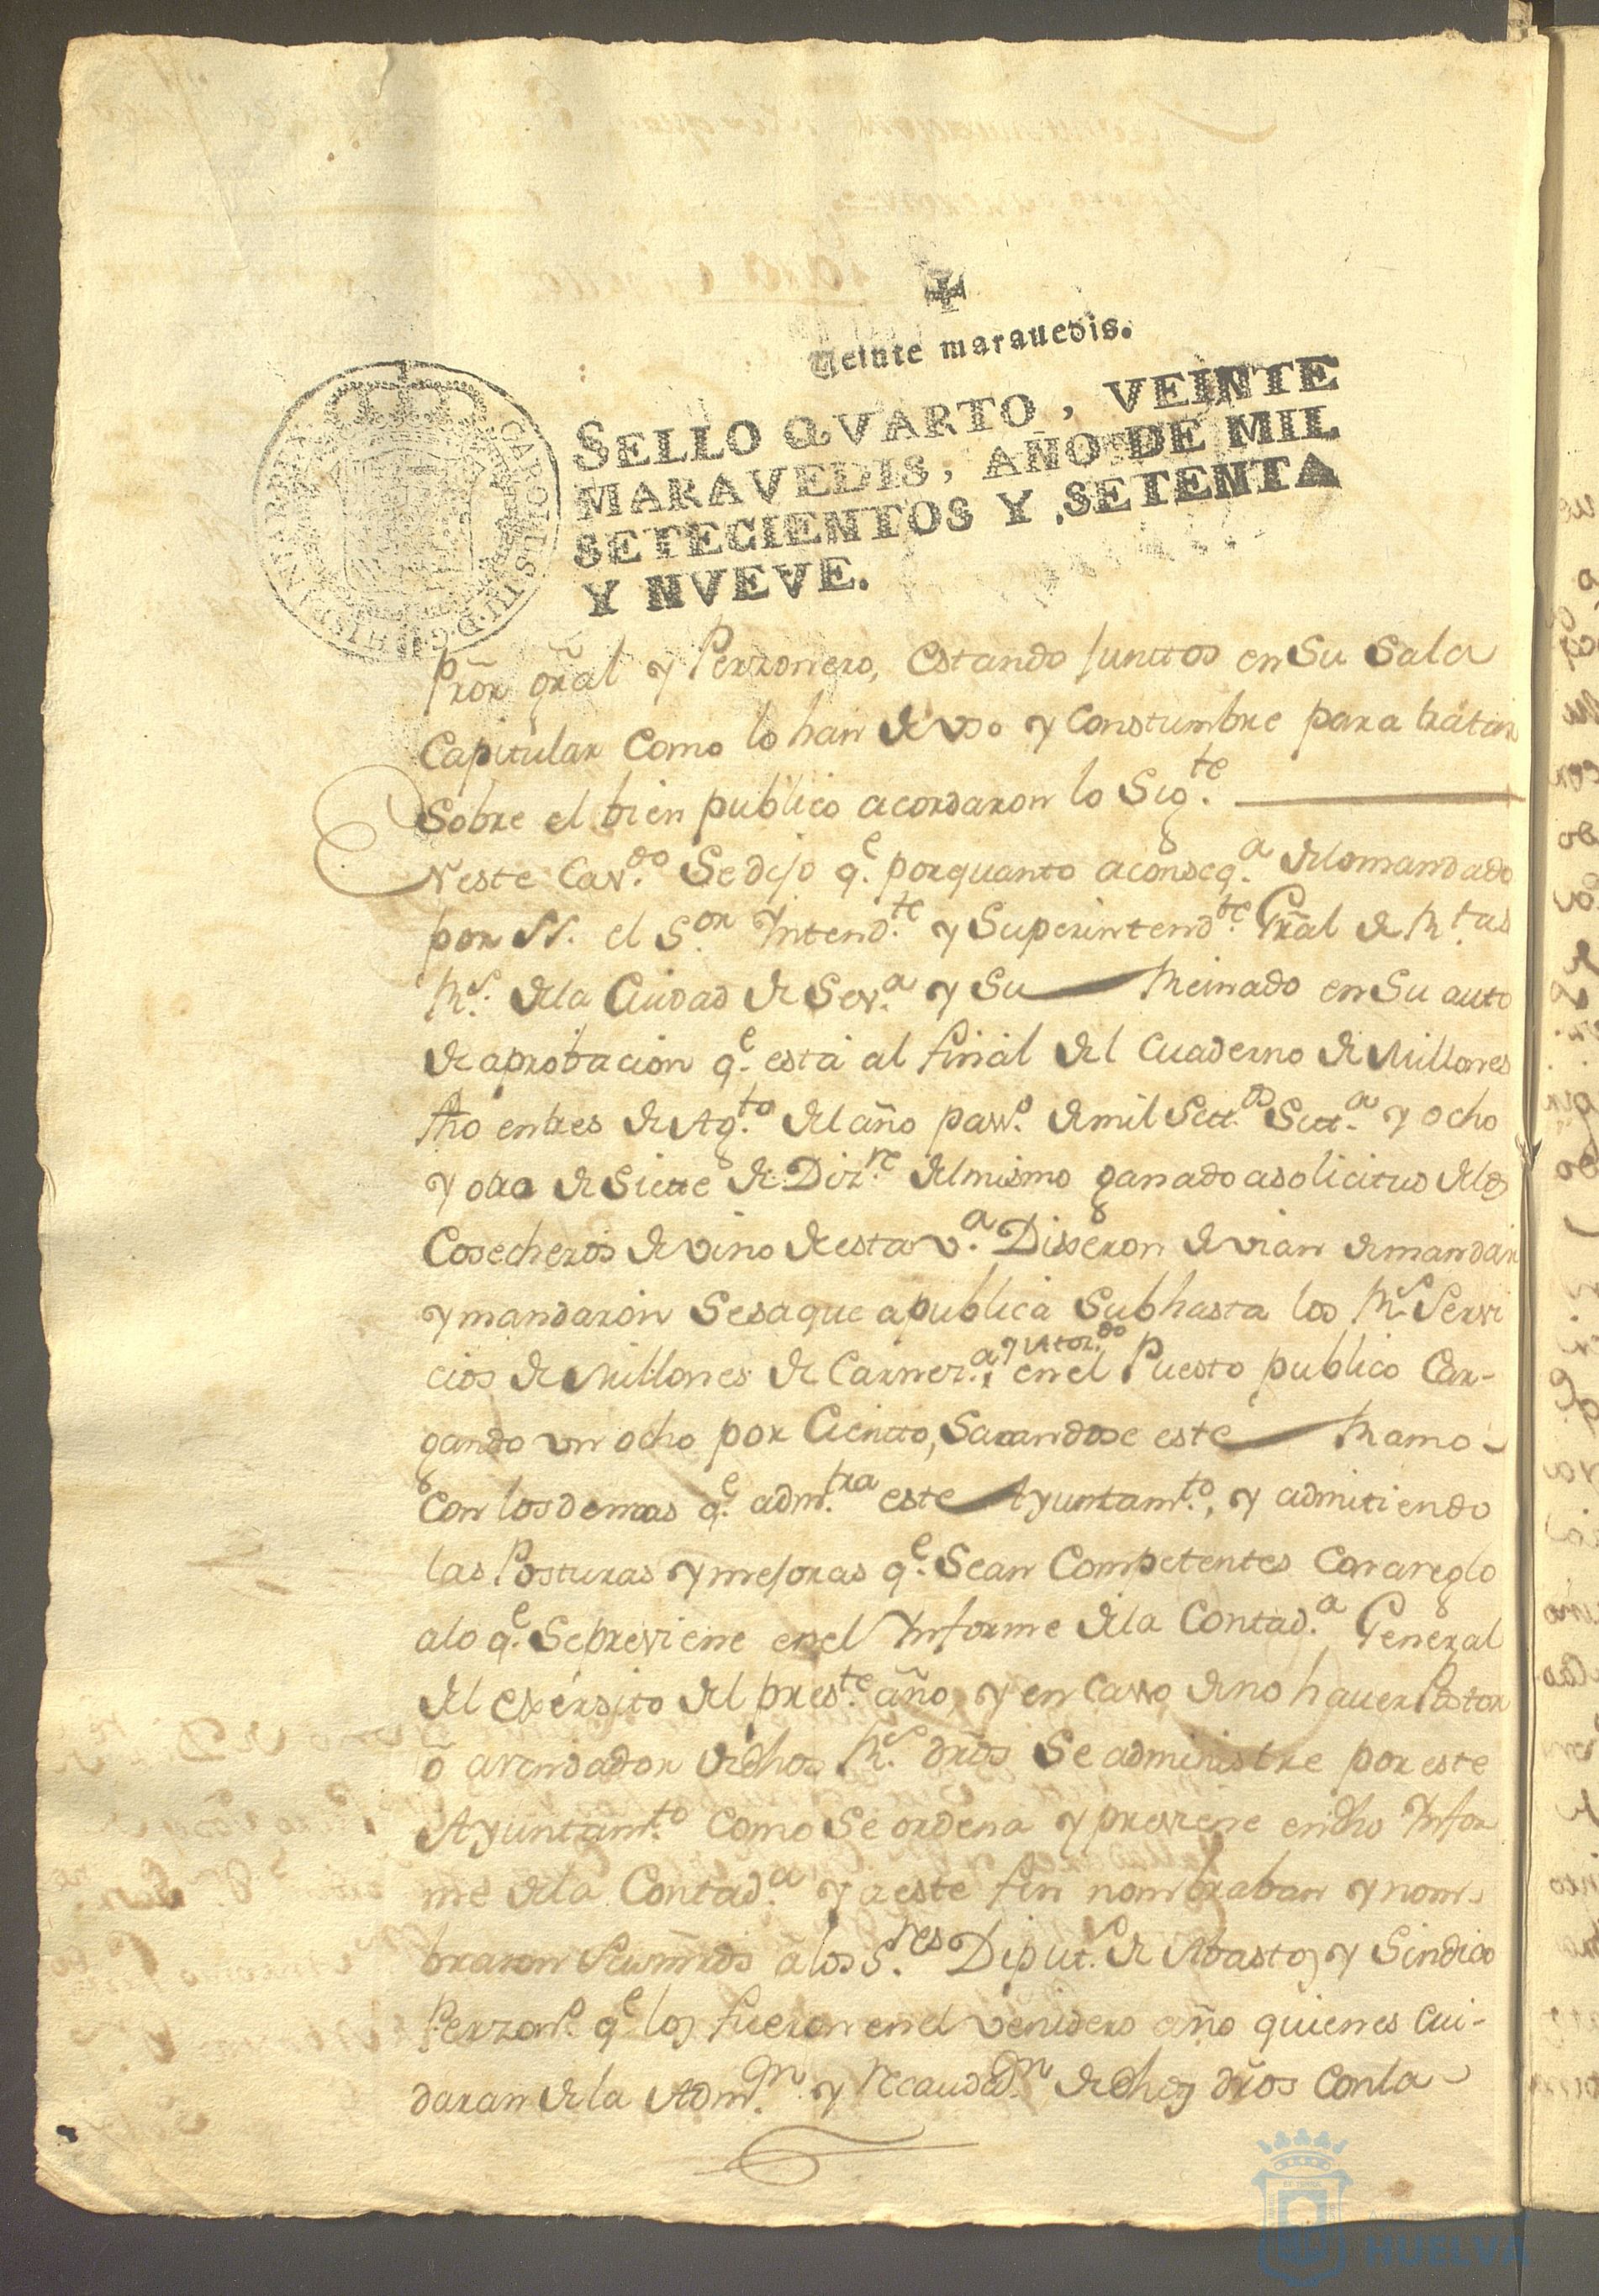 Veinte marauedis.
SELLO QVARTO, VEINTE
MARAVEDIS, AÑO DE MIL
SETECIENTOS Y SETENTA
Y NVEVE.
CAROLUS III D G HISPANIAR REX
Pror gral y Perzonero, estando Junttos en Su Sala
Capitular Como lo han de vso y Constumbre para tratar
Sobre el bien publico acordaron lo Sigte.
En este Cavdo. Se dijo qe. porquanto aconseqa. delo mandado
por el Sor. Yntendte. y Superintendte. Gral de Rtas
Rs. dela Ciudad de Seva. y Su Reinado en Su auto
de aprobacion qe. está al final del Cuaderno de Millones
fho en tres de Agto. del año passo. de mil Settos. Setta. y ocho
y otro de Siette de Dizre. del mismo ganado a solicitud delos
Cosecheros de vino de esta va. Dixeron devian de mandar
y mandaron Se saque a publica Subhasta los Rs. Servi
cios de Millones de Carnera. y Atordo. en el Puesto publico Car-
gando un ocho por Cientto, Sacandose este Ramo
Con los demas qe. admtra este Ayuntamto., y admitiendo
las Posturas y mejoras qe. Sean Competentes Con areglo
alo qe. Se previene en el Ynforme dela Contada. General
del exersito del preste. año, y en Casso de no hauer Postor
ò arendador de dhos Rs. dros Se administre por este
Ayuntamto. Como Se ordena y previene en dho Ynfor
me dela Contada. y a este fin nombraban y nom-
braron a los Sres Diputs. de Abastos y Sindico
Perzono. qe. los fueron en el venidero año quienes Cui-
daran dela Admon. y recaudon. de dhos dros Con la
HUELVA